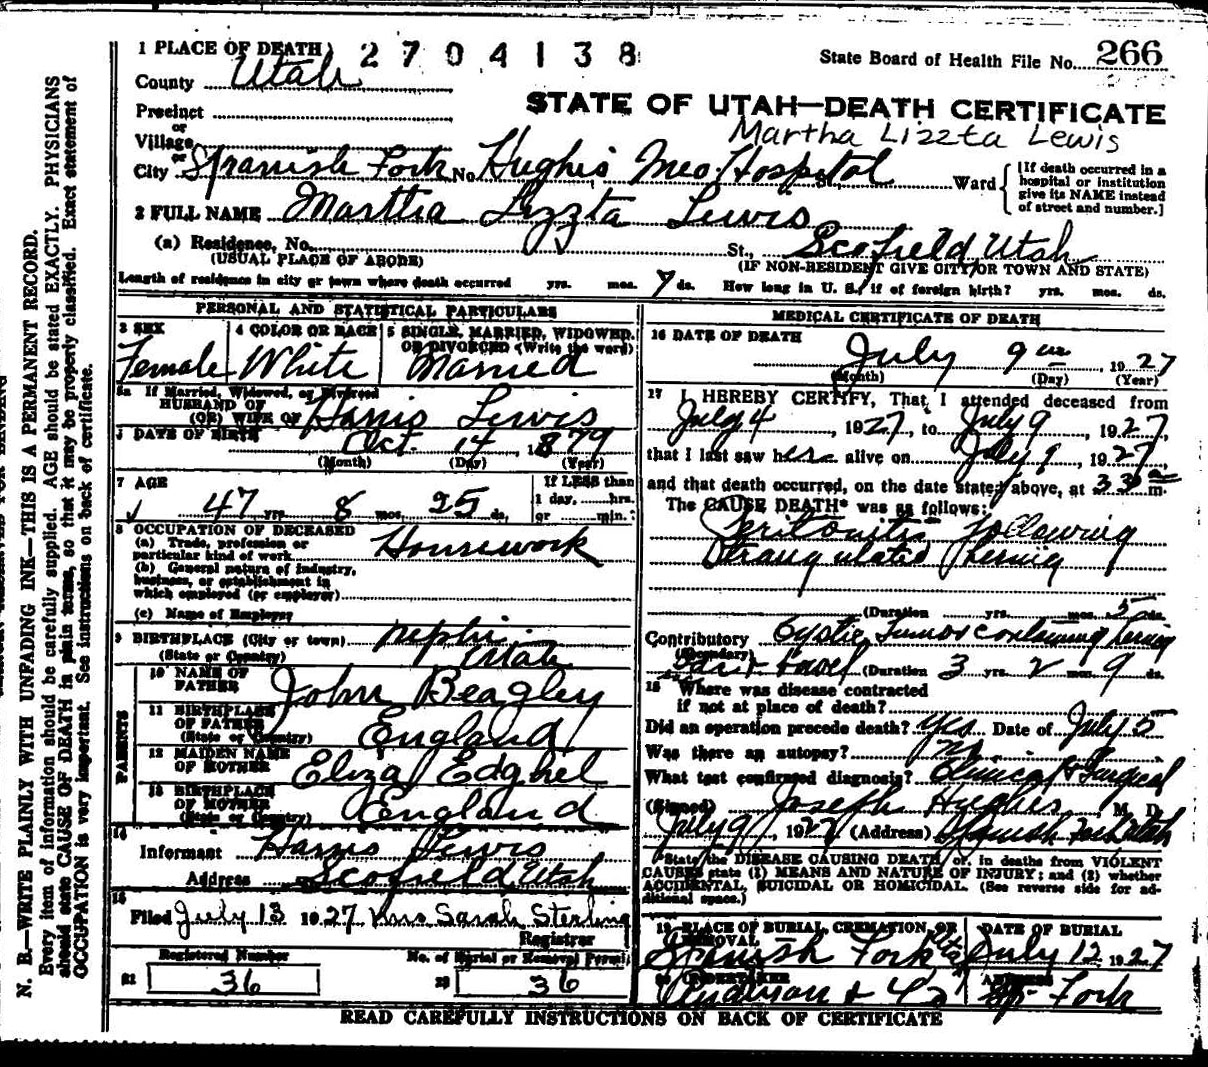 1 PLACE OF DEATH 2704138 State Board of Health File No. 266
County Utah
STATE OF UTAH—DEATH CERTIFICATE
Precinct
or
Martha Lizzta Lewis
Village
or
City Spanish Fork No. Hughes Mem Hospital St., Ward [If death occurred in a hospital or institution give its NAME instead of street and number.]
2 FULL NAME Marttia Lizzta Lewis
(a) Residence, No. St., Scofield Utah
(USUAL PLACE OF ABODE) (IF NON-RESIDENT GIVE CITY OR TOWN AND STATE)
Length of residence in city or town where death occurred yrs. mos. 7 ds. How long in U. S., if of foreign birth? yrs. mos. ds.
PERSONAL AND STATISTICAL PARTICULARS
3 SEX 4 COLOR OR RACE 5 SINGLE, MARRIED, WIDOWED, OR DIVORCED (Write the word)
Female White Married
5a If Married, Widowed, or Divorced
HUSBAND OF
(OR) WIFE OF Harris Lewis
DATE OF BIRTH Oct. 14, 1879
(Month) (Day) (Year)
7 AGE If LESS than
47 yrs. 8 mos. 25 ds. 1 day, hrs.
or min.
8 OCCUPATION OF DECEASED
(a) Trade, profession or
particular kind of work Housework
(b) General nature of industry,
business, or establishment in
which employed (or employer)
(c) Name of Employer
9 BIRTHPLACE (City or town) Nephi
(State or Country) Utah
PARENTS
10 NAME OF
FATHER John Beagley
11 BIRTHPLACE
OF FATHER
(State or Country) England
12 MAIDEN NAME
OF MOTHER Eliza Edghel
13 BIRTHPLACE
OF MOTHER
(State or Country) England
14
Informant Harris Lewis
Address Scofield Utah
15
Filed July 13 1927 Mrs Sarah Sterling
Registrar
Registered Number No. of Burial or Removal Permit
21 36 22 36
MEDICAL CERTIFICATE OF DEATH
16 DATE OF DEATH
July 9 1927
(Month) (Day) (Year)
17 I HEREBY CERTIFY, That I attended deceased from
July 4, 1927, to July 9, 1927,
that I last saw her alive on July 9, 1927,
and that death occurred, on the date stated above, at 330 a m.
The CAUSE DEATH* was as follows:
Peritonitis following
Strangulated hernia
(Duration yrs. mos. 5 ds.
Contributory Cystic Tumor containing hernia
(Secondary) (Duration 3 yrs. 2 m 9 ds.
18 Where was disease contracted
if not at place of death?
Did an operation precede death? Yes Date of July 5
Was there an autopsy? No
What test confirmed diagnosis? Clinical & Surgical
(Signed) Joseph Hughes M. D.
July 9, 1927 (Address) Spanish Fork Utah
*State the DISEASE CAUSING DEATH, or, in deaths from VIOLENT
CAUSES state (1) MEANS AND NATURE OF INJURY; and (2) whether
ACCIDENTAL, SUICIDAL OR HOMICIDAL. (See reverse side for ad-
ditional space.)
19 PLACE OF BURIAL, CREMATION, OR REMOVAL DATE OF BURIAL
Spanish Fork Utah July 12, 1927
20 UNDERTAKER ADDRESS
Anderson & Sp. Fork
READ CAREFULLY INSTRUCTIONS ON BACK OF CERTIFICATE
N. B.—WRITE PLAINLY WITH UNFADING INK—THIS IS A PERMANENT RECORD.
Every item of information should be carefully supplied. AGE should be stated EXACTLY. PHYSICIANS
should state CAUSE OF DEATH in plain terms, so that it may be properly classified. Exact statement of
OCCUPATION is very important. See instructions on back of certificate.